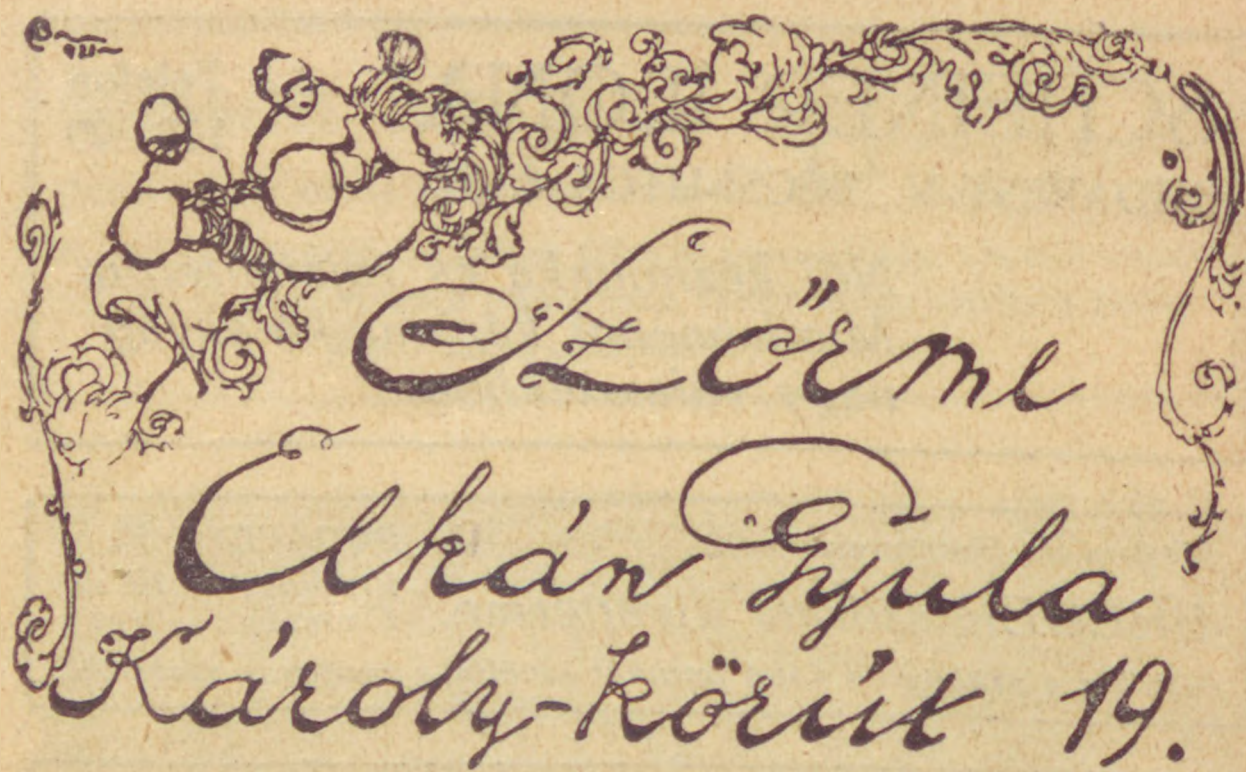 Szőrme
Elkán Gyula
Károly-körút 19.